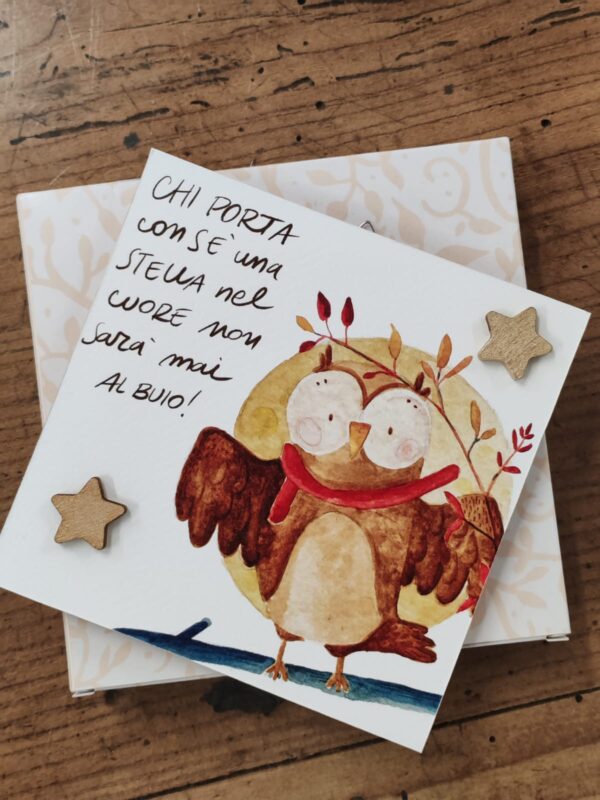 CHI PORTA
con SE' una
STELLA nel
CUORE non
sarà mai
AL BUIO!